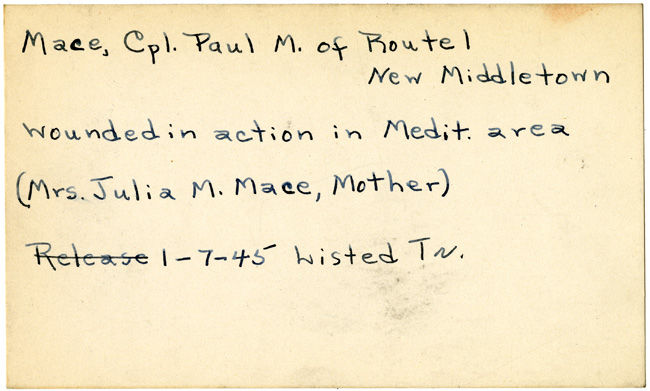 Mace, Cpl. Paul M. of Route 1
New Middletown
wounded in action in Medit. area
(Mrs. Julia M. Mace, Mother)
Release 1-7-45 Listed Tr.